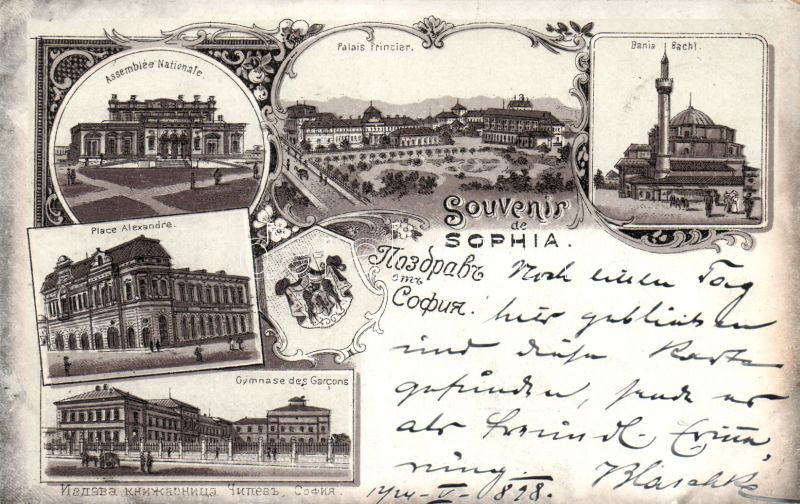 Assemblée Nationale.
Palais Princier.
Bania Bachi.
Place Alexandre.
Souvenir
de
SOPHIA.
Поздравъ
отъ
София.
Gymnase des Garçons
Издава книжарница Чипевъ, София.
Noch einen Tag
hier geblieben
und diese Karte
gefunden, sende es
als freundl. Erinne-
rung. Blaschke
V - 898.